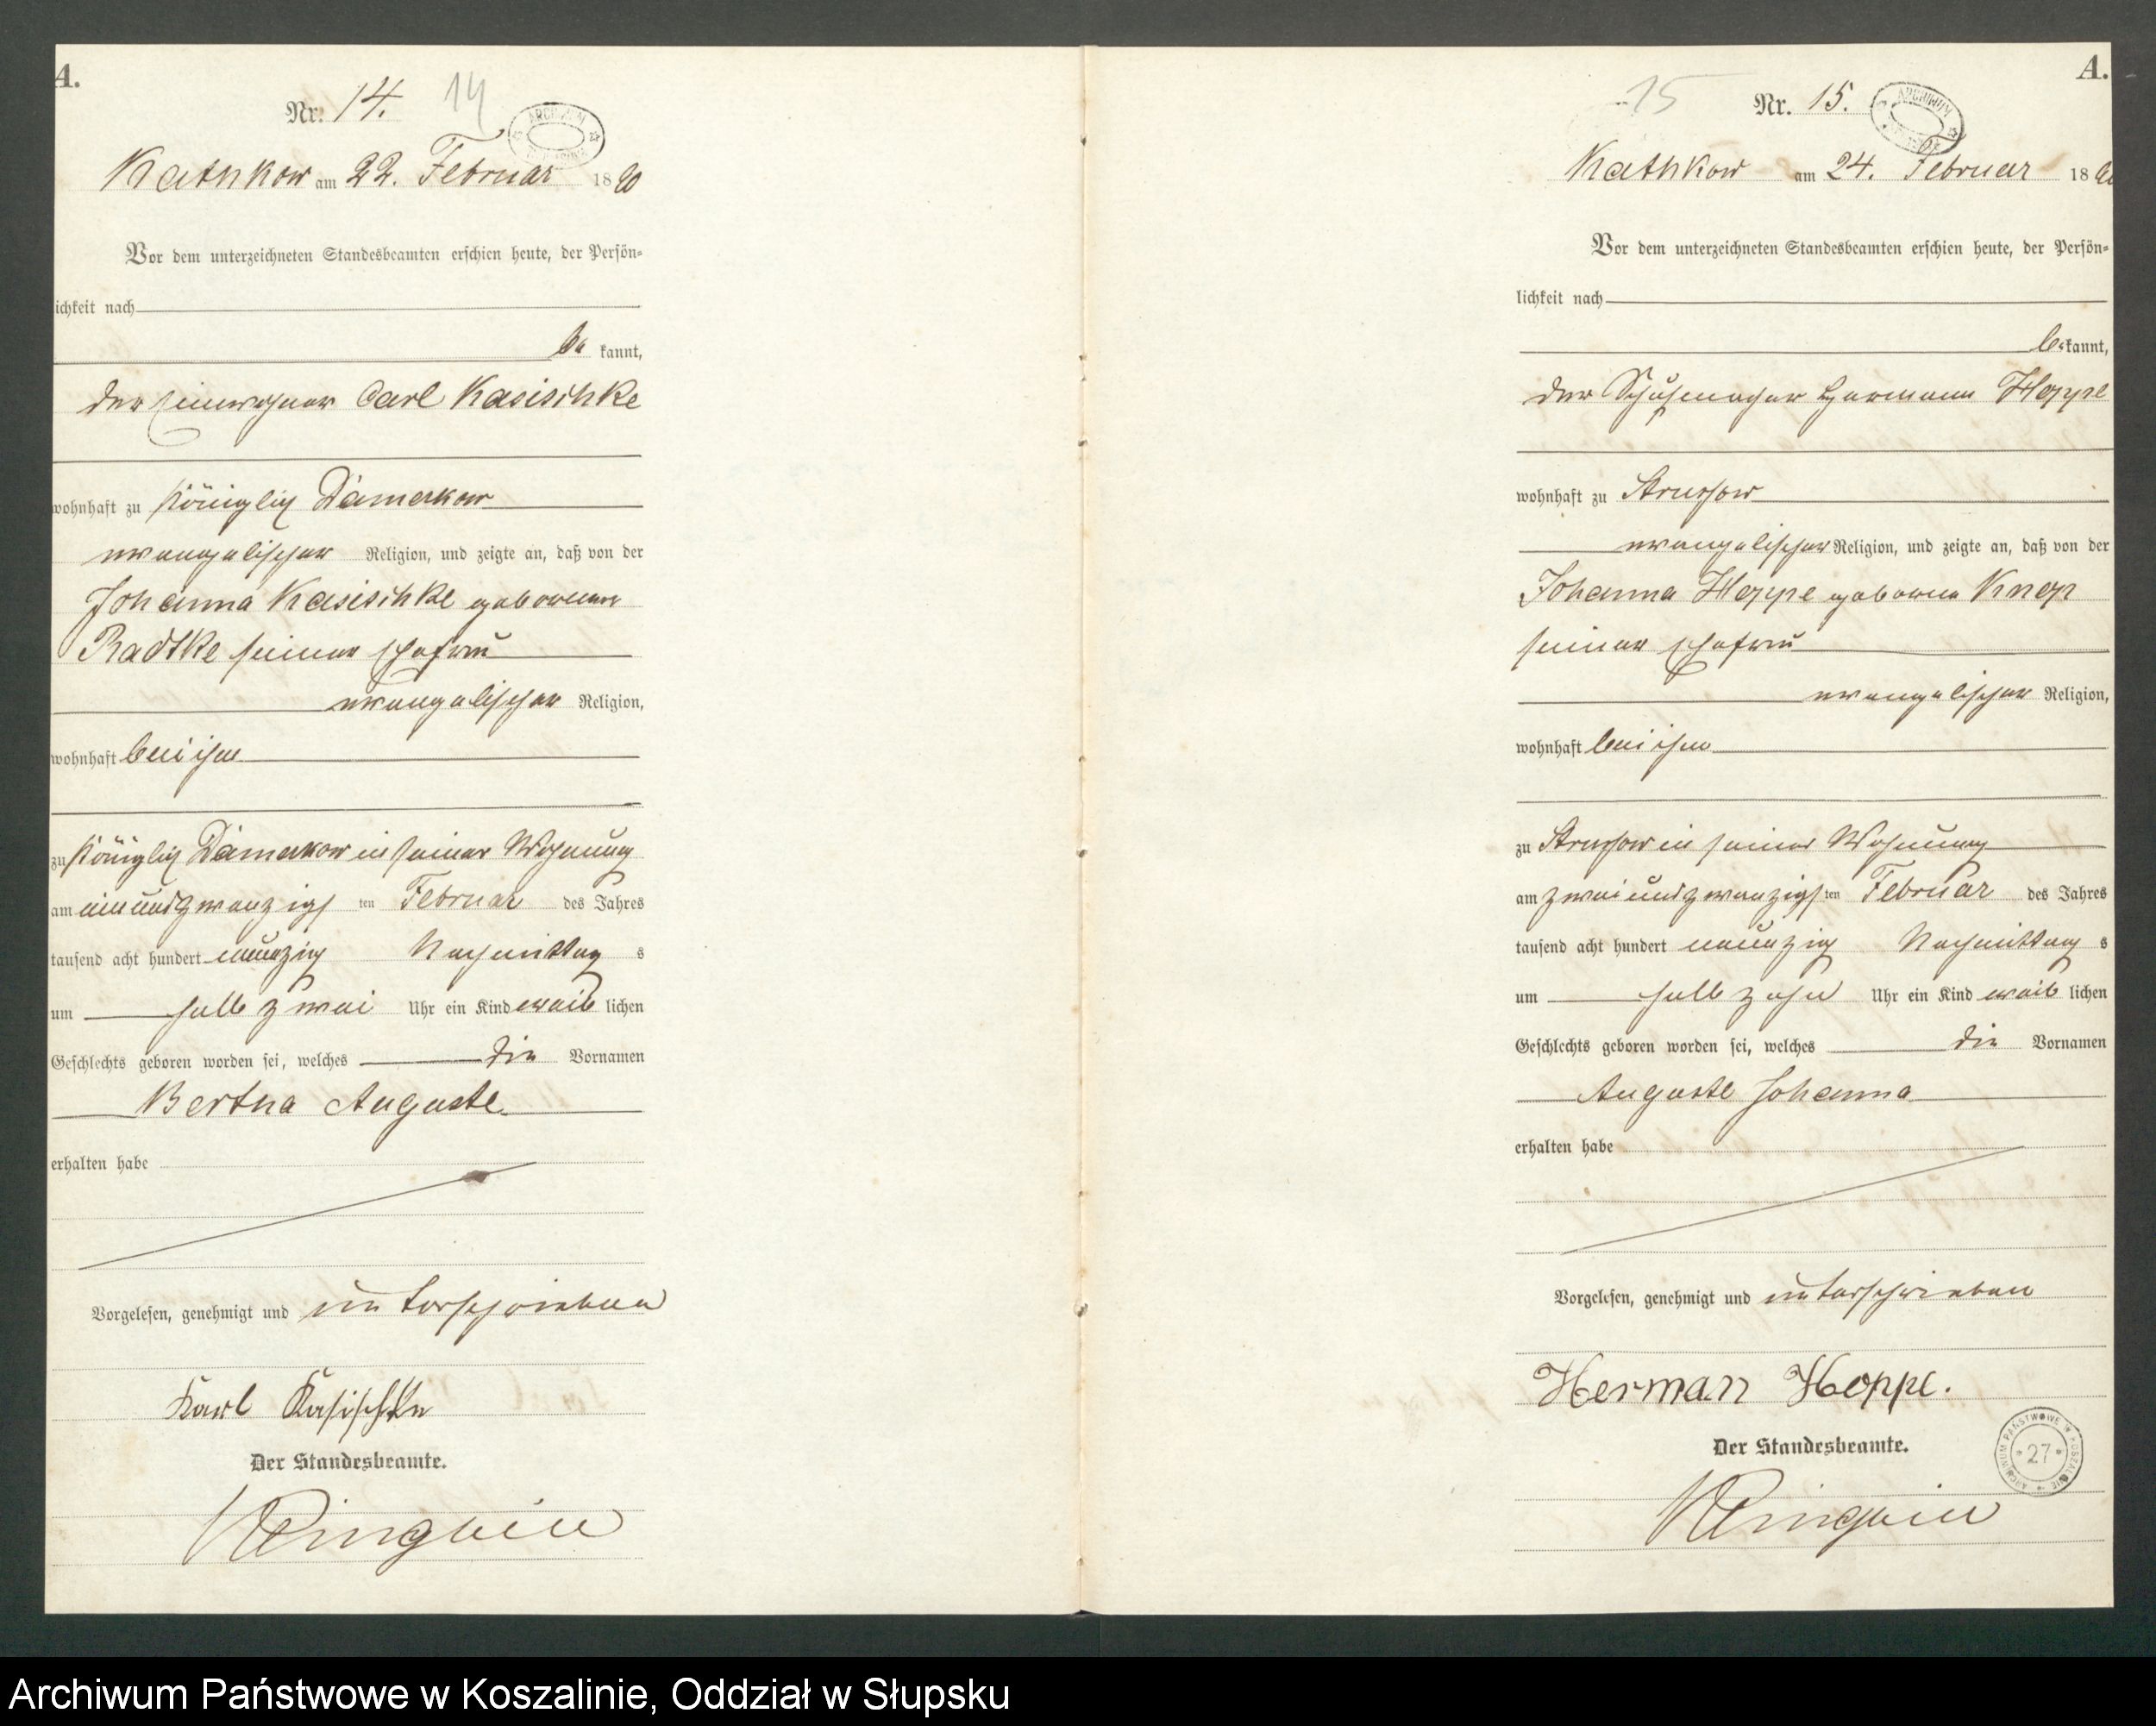 A.
Nr. 14. 14
Kathkow am 22. Februar 1890
Vor dem unterzeichneten Standesbeamten erschien heute, der Persön-
lichkeit nach
be kannt,
der Einwohner Carl Kasischke
wohnhaft zu Königlich Damerkow
evangelischer Religion, und zeigte an, daß von der
Johanna Kasischke geborenen
Radtke seiner Ehefrau
evangelischer Religion,
wohnhaft bei ihm
zu Königlich Damerkow in seiner Wohnung
am einundzwanzigs ten Februar des Jahres
tausend acht hundert neunzig Nachmittag s
um halb zwei Uhr ein Kind weib lichen
Geschlechts geboren worden sei, welches die Vornamen
Bertha Auguste
erhalten habe
Vorgelesen, genehmigt und unterschrieben
Karl Kasischke
Der Standesbeamte.
A.
15 Nr. 15.
Kathkow am 24. Februar 1890
Vor dem unterzeichneten Standesbeamten erschien heute, der Persön-
lichkeit nach
bekannt,
der Schuhmacher Hermann Hoppe
wohnhaft zu Strussow
evangelischer Religion, und zeigte an, daß von der
Johanna Hoppe geborne Knop
seiner Ehefrau
evangelischer Religion,
wohnhaft bei ihm
zu Strussow in seiner Wohnung
am zweiundzwanzigs ten Februar des Jahres
tausend acht hundert neunzig Nachmittag s
um halb zehn Uhr ein Kind weib lichen
Geschlechts geboren worden sei, welches die Vornamen
Auguste Johanna
erhalten habe
Vorgelesen, genehmigt und unterschrieben
Herman Hoppe.
Der Standesbeamte.
ARCHIWUM PAŃSTWOWE W KOSZALINIE
* 27 *
Archiwum Państwowe w Koszalinie, Oddział w Słupsku